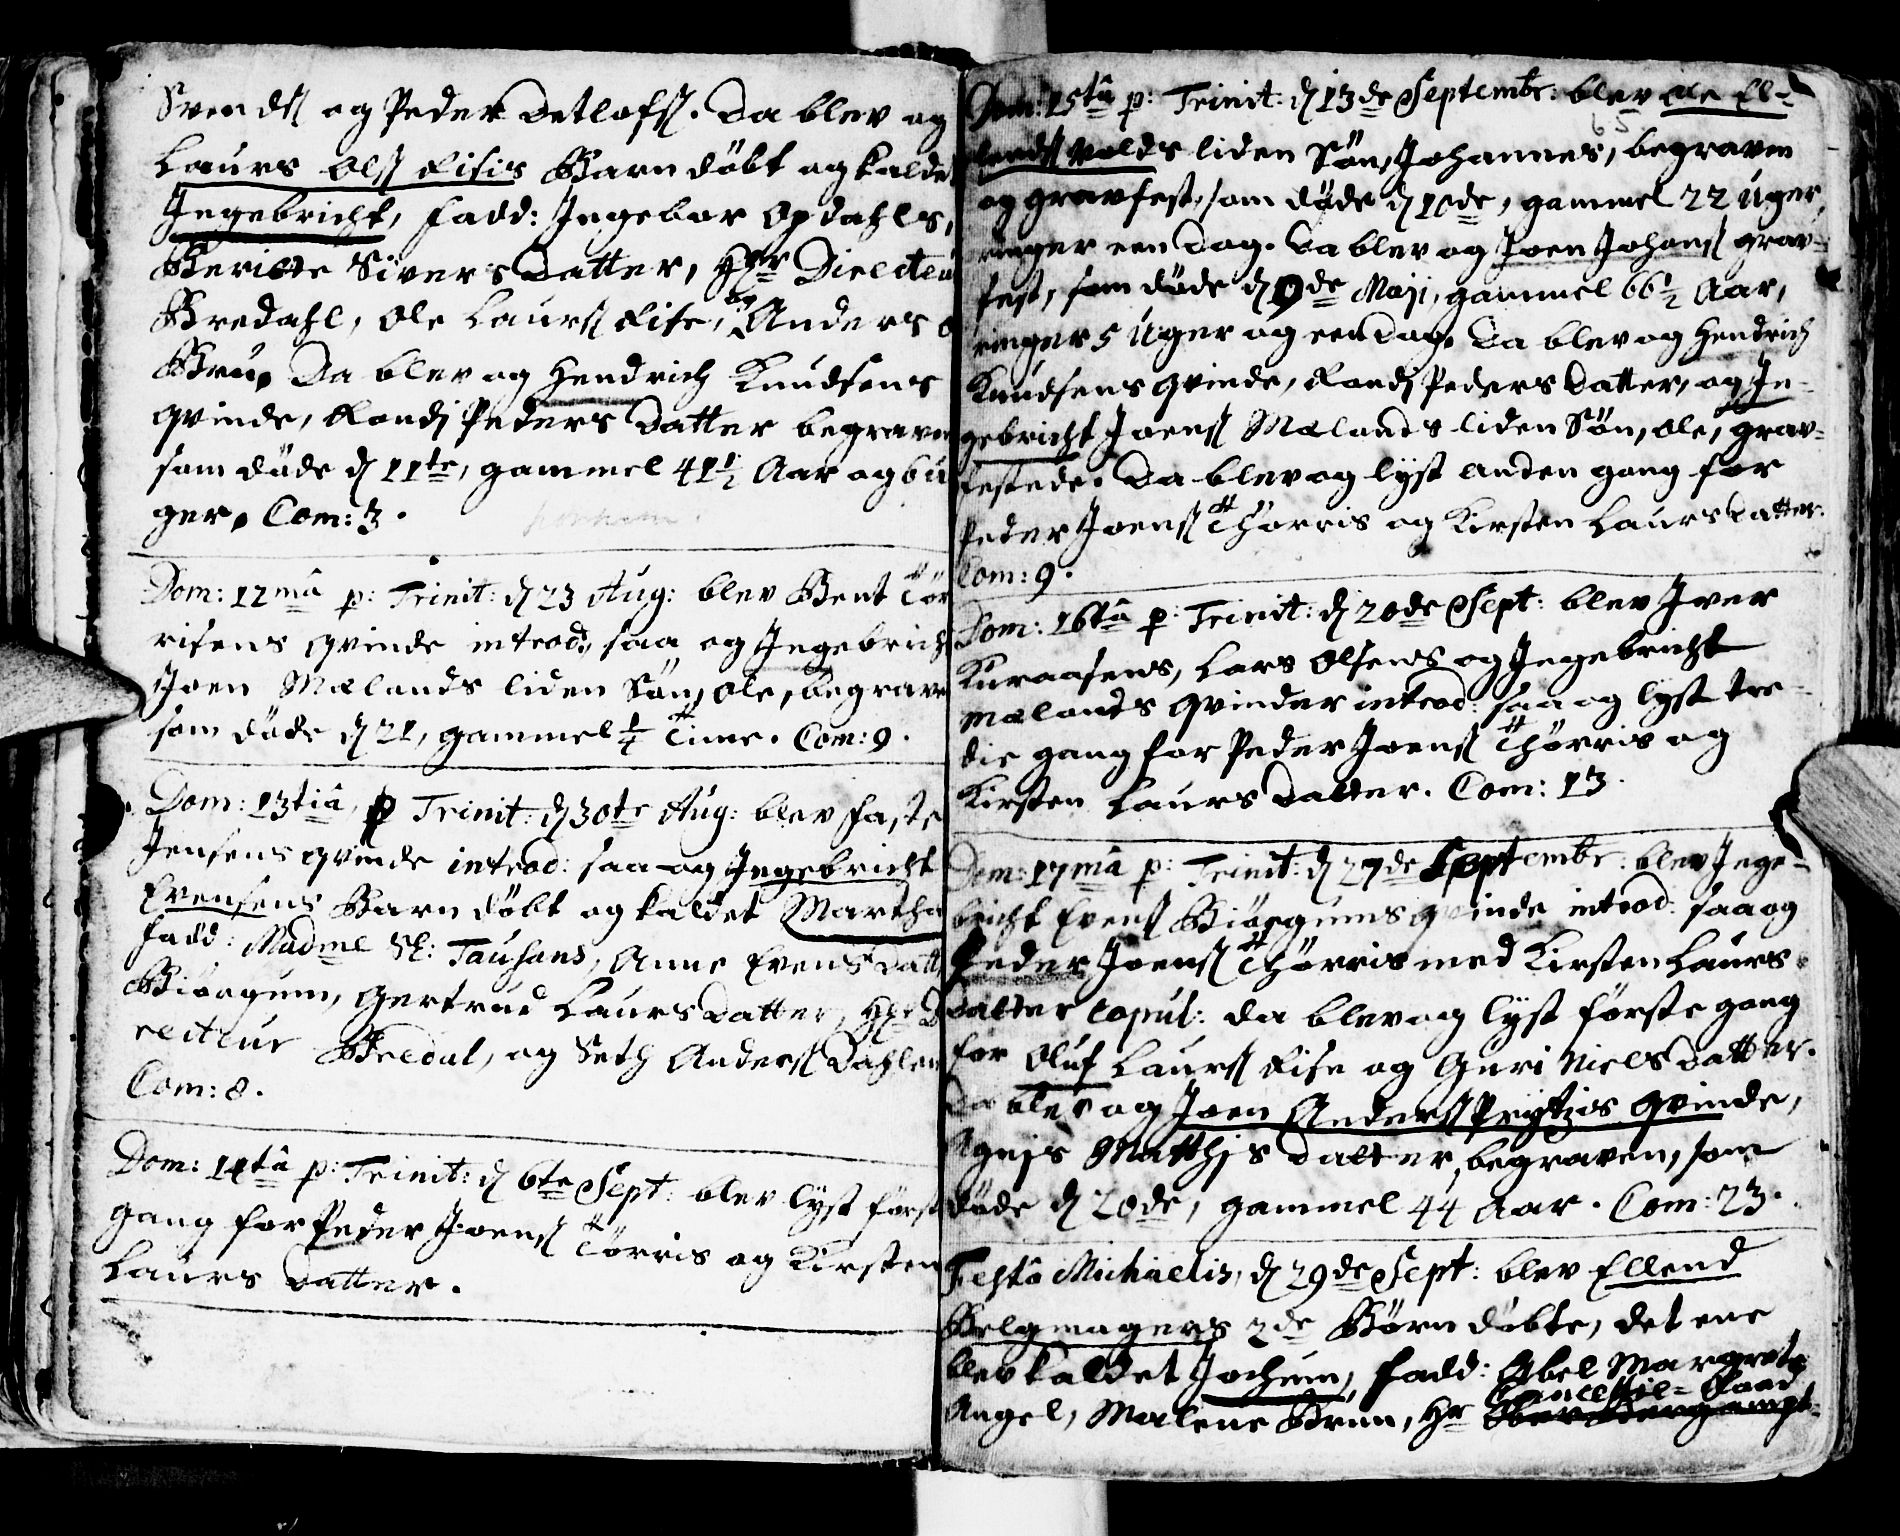 Svends: og Peder Detlofs:. Da blev og
Laurs Ols: Risis Barn döbt og kaldet
Ingebricht, fadd: Ingebor Opdahls,
Beritte Sivers Datter, Hr Directeu
Bredahl, Ole Laurs: Rise, og Anders
Bru. Da blev og Hendrich Knudsens
qvinde, Randj Peders Datter begraven
som döde d 11te, gammel 41 1/2 Aar og 6 u
ger. Com: 3.
Dom: 12mâ p: Trinit: d 23 Aug: blev Bent Tör
risens qvinde introd:, saa og Ingebricht
Joen Mælands liden Sön, Ole, begrave
som döde d 21, gammel 1/4 Time. Com: 9.
Dom: 13tiâ, p Trinit: d 30te Aug: blev Faste
Jensens qvinde introd: saa og Ingebricht
Evensens Barn döbt og kaldet Martha
fadd: Madme Sl: Tausans, Anne Evens Datt
Biörgum, Gertrud Laurs Datter, Hr Di
recteur Bredal, og Seth Anders: Dahlen
Com: 8.
Dom: 14tâ p: Trinit: d 6te Sept: blev lyst först
gang for Peder Joens: Törris og Kirsten
Laurs Datter.
Dom: 15tâ p: Trinit: d 13de Septembr: blev Ole El-
65
lends: Volds liden Sön, Johannes, begraven
og gravfest, som döde d 10de, gammel 22 Uger,
ringer een Dag. Da blev og Joen Johans: grav-
fest, som döde d 9de Maji, gammel 66 1/2 Aar,
ringer 5 Uger og een Dag. Da blev og Hendrich
Knudsens qvinde, Randj Peders Datter, og In-
gebricht Joens: Mælands liden Sön, Ole, grav-
festede. Da blev og lyst anden gang for
Peder Joens: Thörris og Kirsten Laurs Datter.
Com: 9.
Dom: 16tâ p: Trinit: d 20de Sept: blev Iver
Kuraasens, Lars Olsens og Ingebricht
Mælands qvinder introd: saa og lyst tre-
die gang for Peder Joens: Thörris og
Kirsten Laurs Datter. Com: 13.
Dom: 17mâ p: Trinit: d 27de Septembr: blev Inge-
bricht Evens: Biörgums qvinde introd: saa og
Peder Joens: Thörris med Kirsten Laurs
Datter copul: da blev og lyst förste gang
for Oluf Laurs: Rise og Guri Niels Datter.
Da blev og Joen Anders: Prytzis qvinde,
Agnjs Matthjs Datter, begraven, som
döde d 20de, gammel 44 Aar. Com: 23.
Festô Michaelis, d 29de Sept: blev Ellend
Belgmagers 2de Börn döbte, det ene
blev kaldet Jochum, fadd: Abel Margrete
Cancellie-Raad
Angel, Malene Brun, Hr